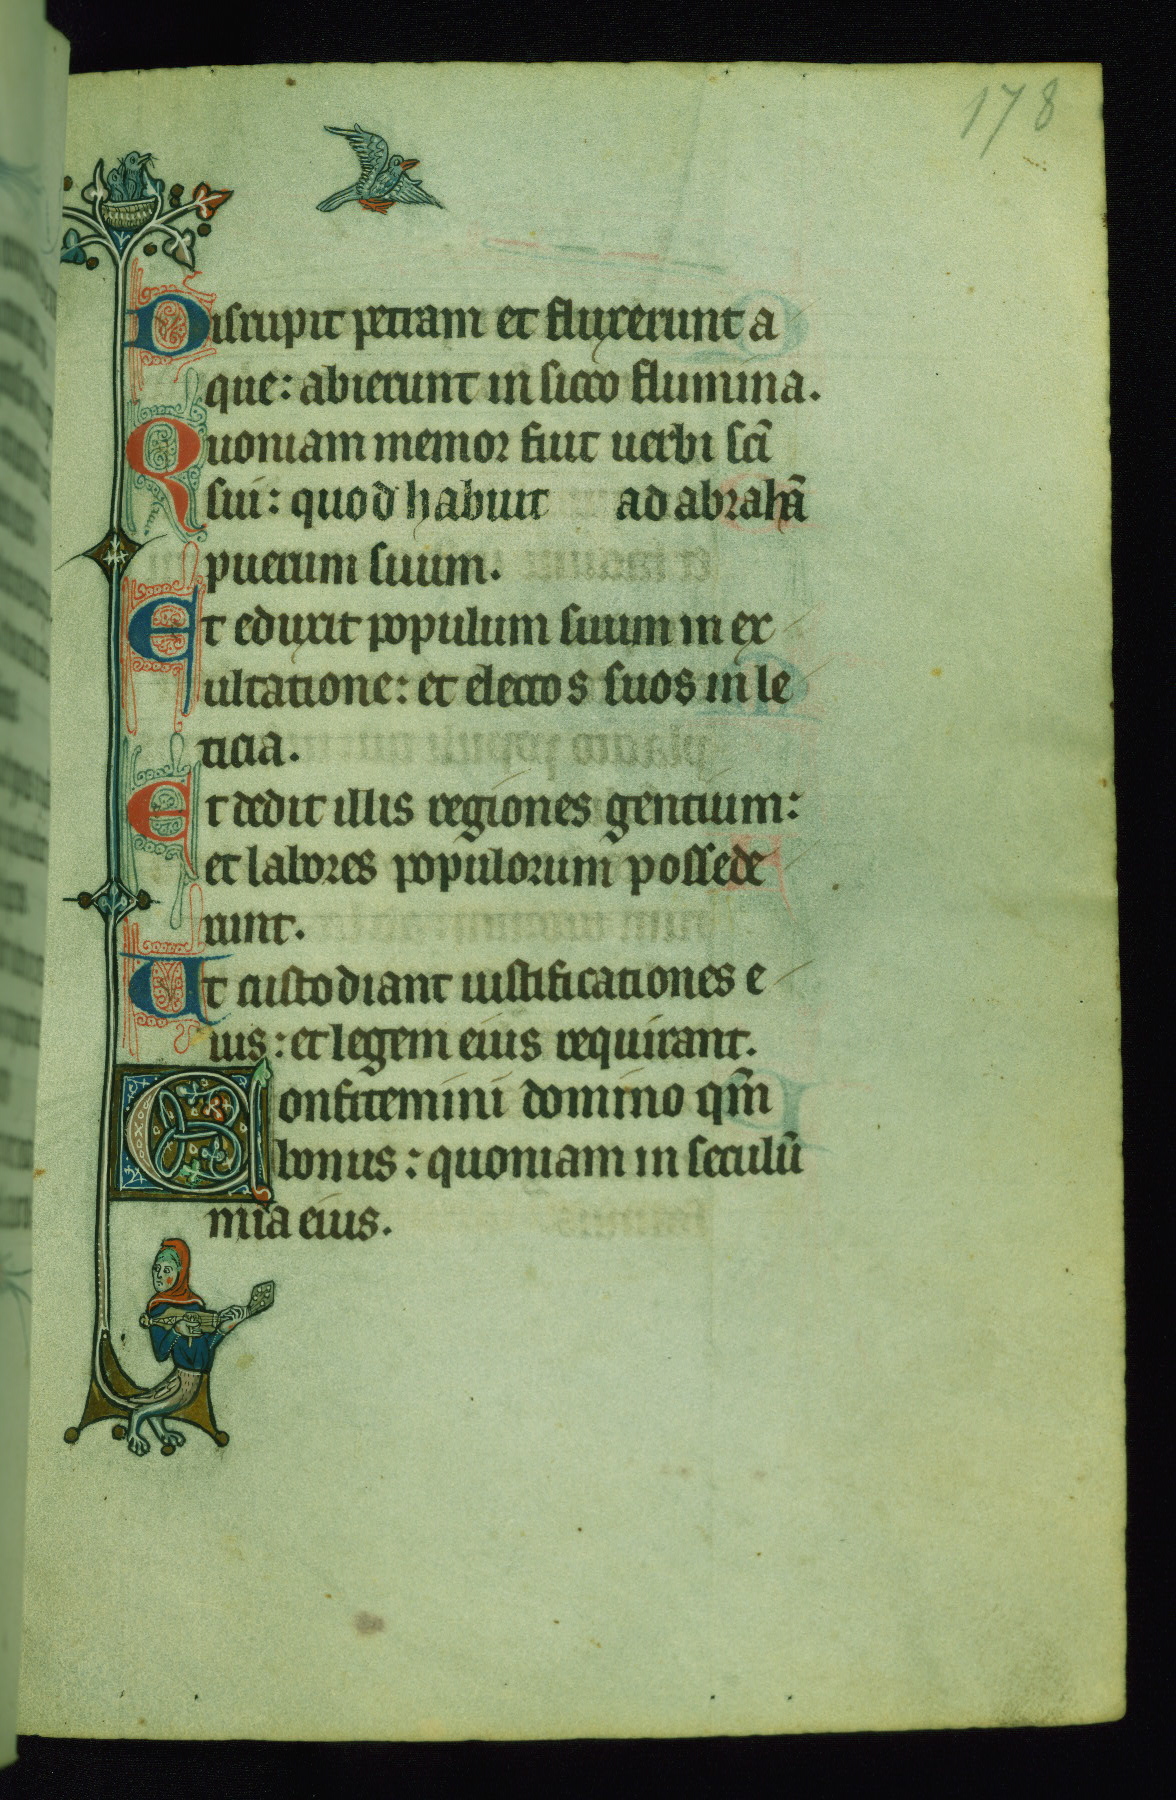 178
Disrupit petram et fluxerunt a
que: abierunt in sicco flumina.
Quoniam memor fuit uerbi sc̄i
sui: quod habuit ad abrahā
puerum suum.
Et eduxit populum suum in ex
ultatione: et electos suos in le
ticia.
Et dedit illis regiones gentium:
et labores populorum possede
runt.
Ut custodiant iustificationes e
ius: et legem eius requirant.
Confitemini domino qm̄
bonus: quoniam in seculū
mīa eius.